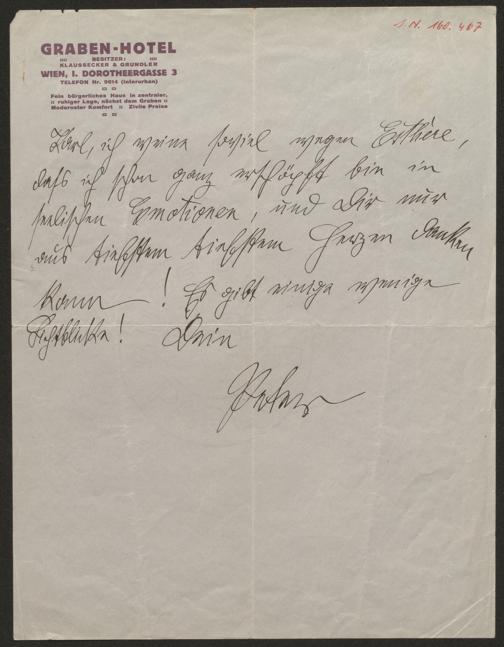 I. N. 160.467
GRABEN-HOTEL
BESITZER:
KLAUSSECKER & GRUNDLER
WIEN, I. DOROTHEERGASSE 3
TELEFON Nr. 9614 (interurban)
Fein bürgerliches Haus in zentraler,
ruhiger Lage, nächst dem Graben
Modernster Komfort Zivile Preise
Karl, ich weine soviel wegen Esthère,
dass ich schon ganz erschöpft bin in
seelischen Emotionen, und Dir nur
aus tiefstem tiefstem Herzen danken
kann! Es gibt einige wenige
Lichtblicke! Dein
Peter